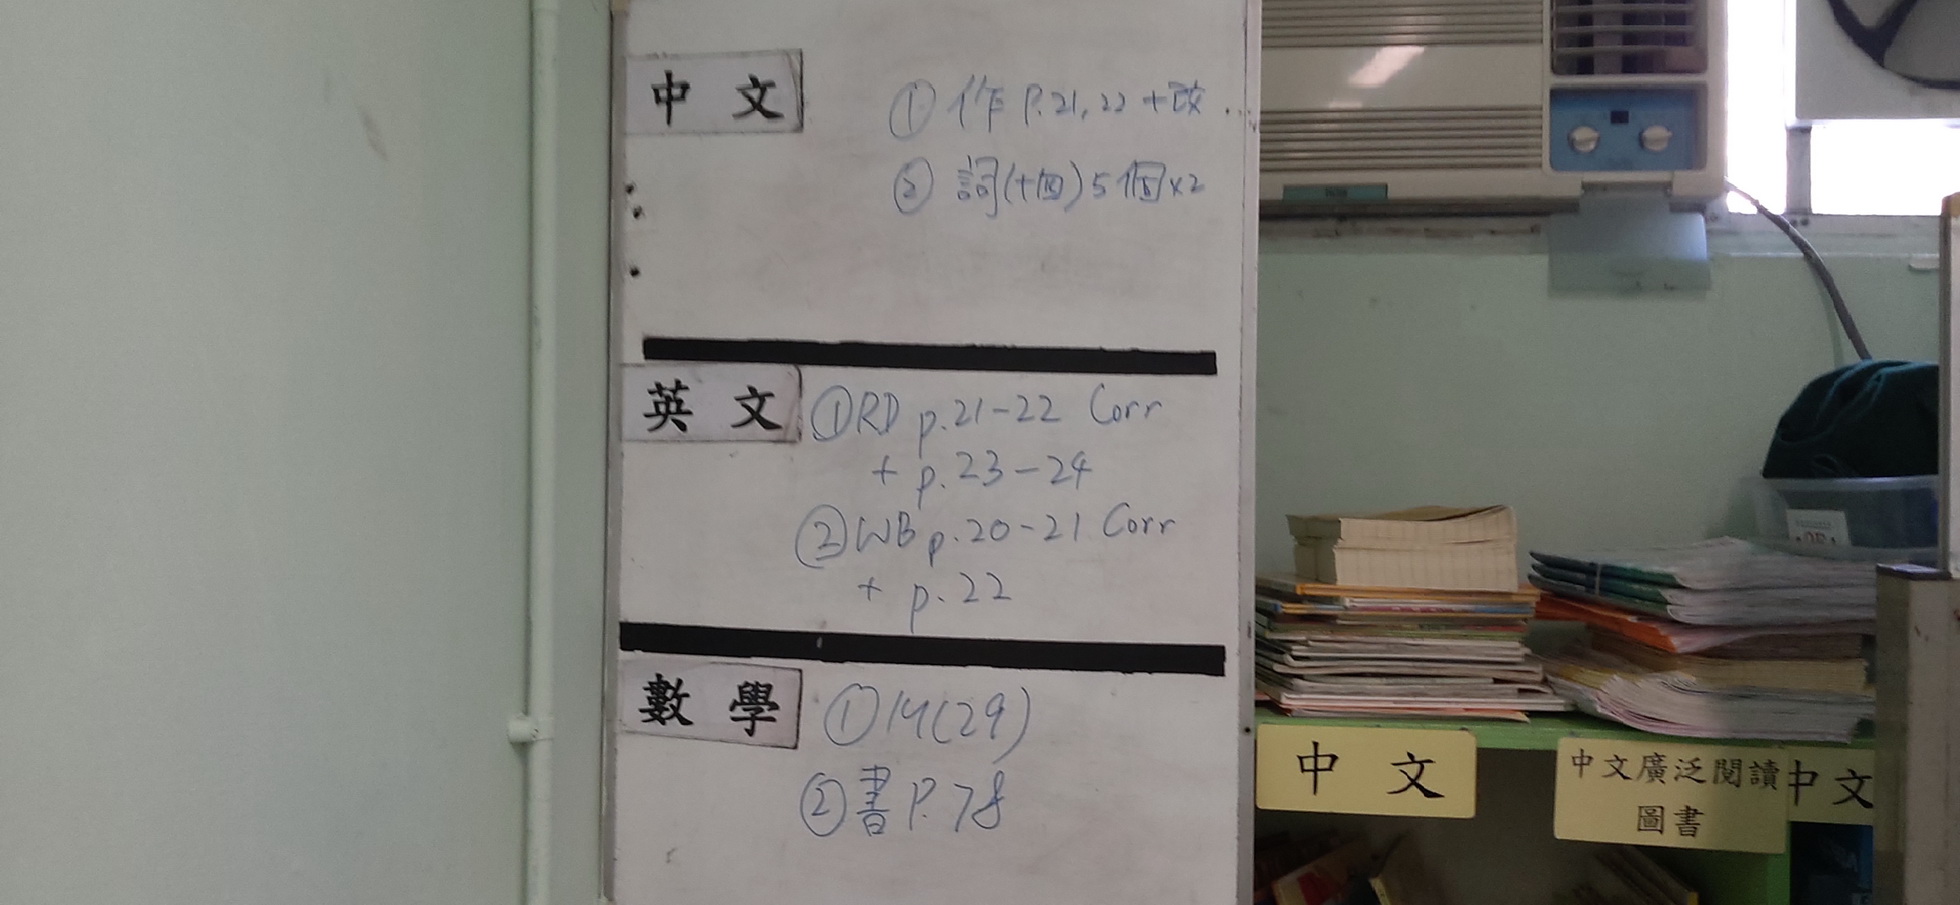 中文
① 作 P.21, 22 +改
② 詞(十四) 5個x2
英文
① RD p.21-22 Corr
+ p.23-24
② WB p.20-21 Corr
+ p.22
數學
① 14(29)
② 書 P.78
中文
中文廣泛閱讀
圖書
中文